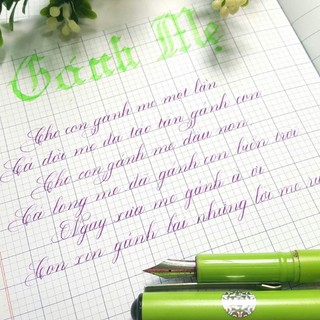 Gánh Mẹ
Cho con gánh mẹ một lần
Cả đời mẹ đã tảo tần gánh con
Cho con gánh mẹ đầu non
Cả lòng mẹ đã gánh con biển trời
Ngày xưa mẹ gánh à ơi
Con xin gánh lại những lời mẹ ru